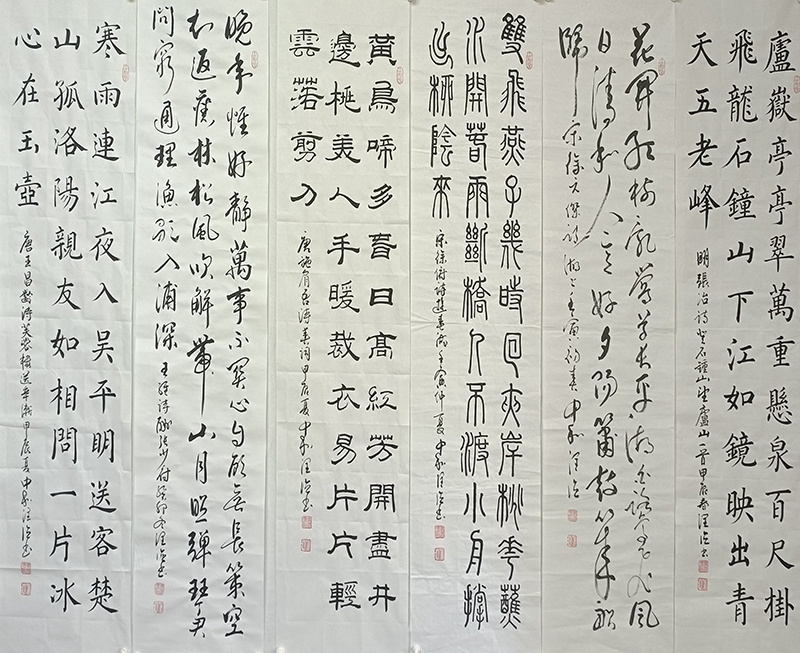 廬嶽亭亭翠萬重懸泉百尺掛
飛龍石鐘山下江如鏡映出青
天五老峰
明張治詩登石鐘山望廬山一首甲辰春
花開紅樹亂鶯啼草長平湖白鷺飛風
日清和人意好夕陽簫鼓幾船
歸
宋徐元傑詩湖上壬寅初春
雙飛燕子幾時回夾岸桃花蘸
水開春雨斷橋人不渡小舟撐
出柳陰來
宋徐俯詩 壬寅仲夏
黃鳥啼多春日高紅芳開盡井
邊桃美人手暖裁衣易片片輕
雲落剪刀
唐施肩吾詩春詞甲辰夏
晚年惟好靜萬事不關心自顧無長策空
知返舊林松風吹解帶山月照彈琴君
問窮通理漁歌入浦深
王維詩酬張少府癸卯冬
寒雨連江夜入吳平明送客楚
山孤洛陽親友如相問一片冰
心在玉壺
唐王昌齡詩芙蓉樓送辛漸甲辰夏